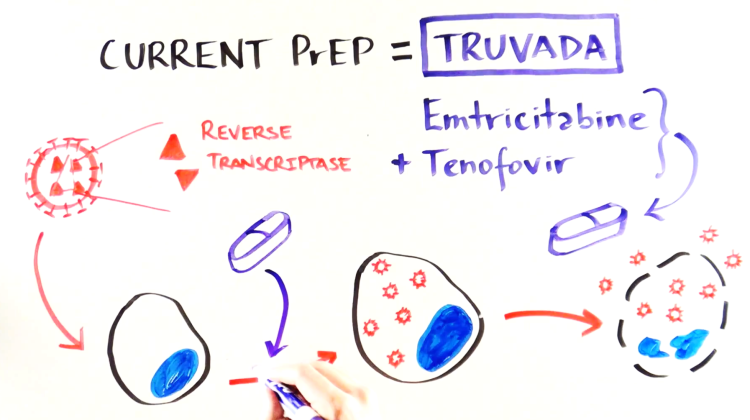 CURRENT PrEP = TRUVADA
REVERSE
TRANSCRIPTASE
Emtricitabine
+ Tenofovir